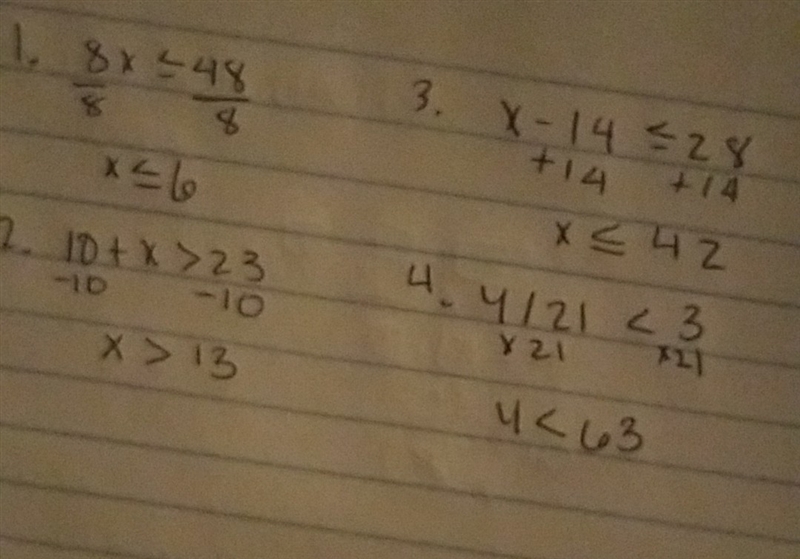 1. 8x ≤ 48
8 8
x ≤ 6
2. 10 + x > 23
-10 -10
x > 13
3. x - 14 ≤ 28
+14 +14
x ≤ 42
4. y/21 < 3
x21 x21
y < 63